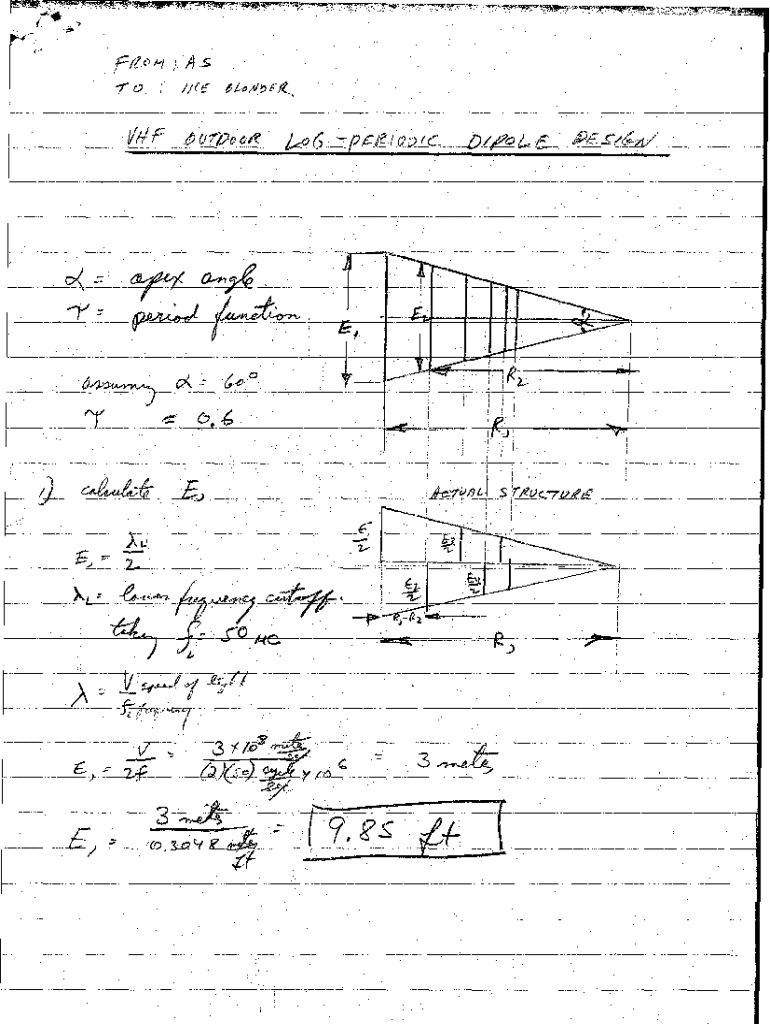 FROM : AS
TO : IKE BLONDER
VHF OUTDOOR LOG-PERIODIC DIPOLE DESIGN
α = apex angle
τ = period function
E₁
E₂
α
R₂
R₁
assuming α = 60°
τ = 0.6
1) calculate E₁
ACTUAL STRUCTURE
E/2
E₁ = λL/2
λL = lower frequency cutoff.
R₁-R₂
R₁
take fL = 50 MC
λ = V speed of light / f, frequency
E₁ = V/2f = 3 × 10⁸ meters/sec / (2)(50) cycle/sec × 10⁶ = 3 meters
E₁ = 3 meters / 0.3048 meters/ft = 9.85 ft